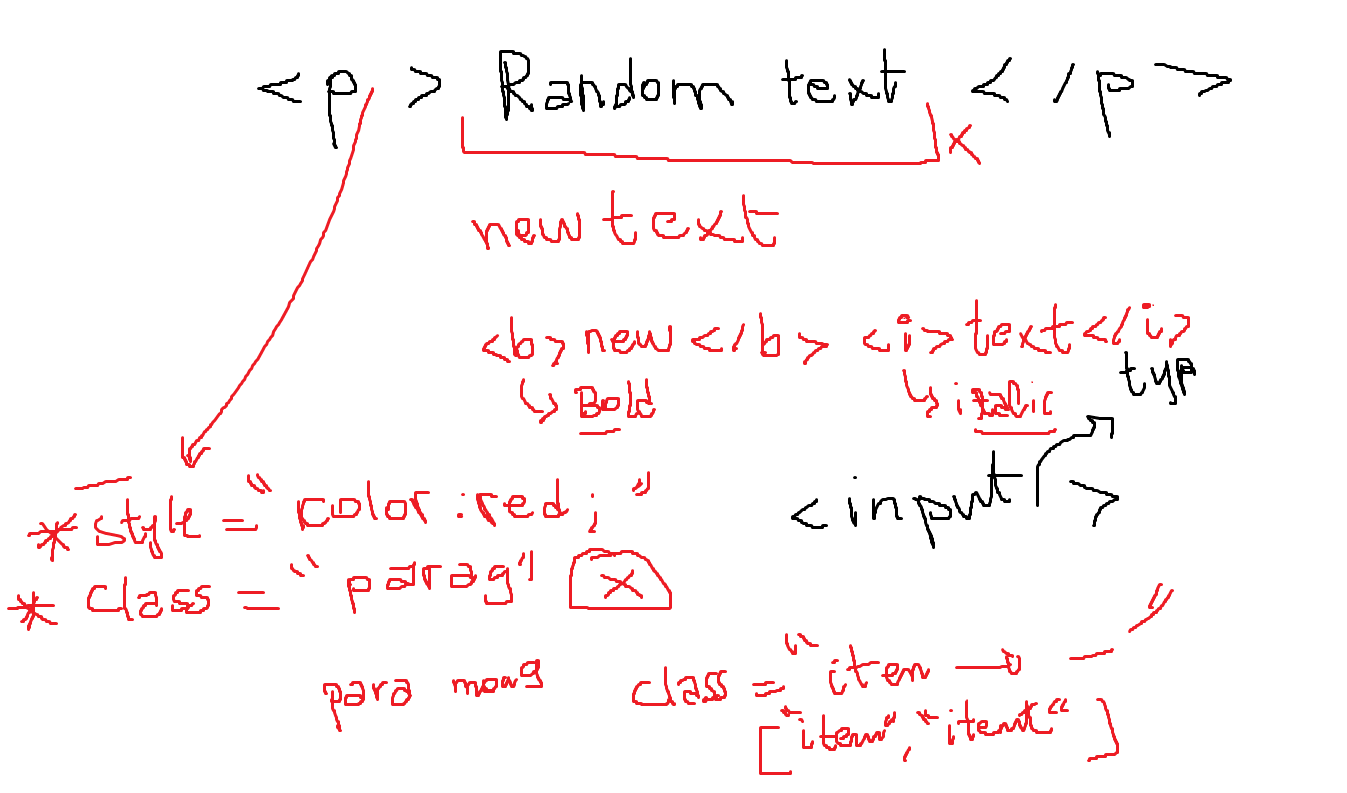 <p> Random text </p>
x
new text
<b> new </b> <i> text </i>
Bold italic
typ
<input >
* style = "color:red;"
* class = "parag" x
para class = "iten
["item", "